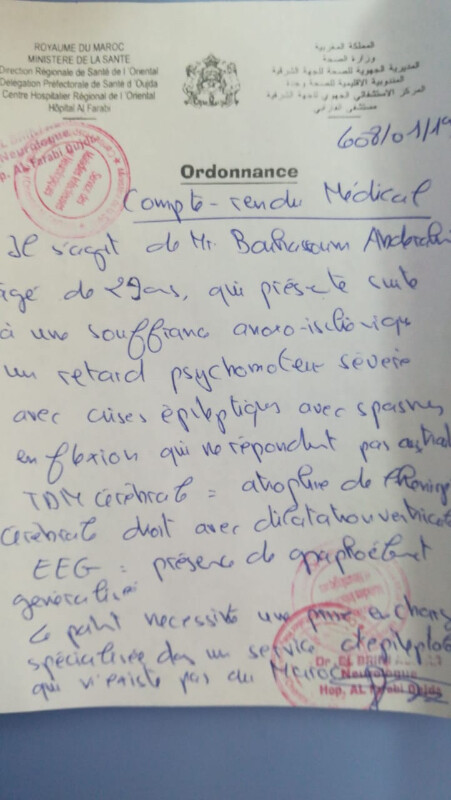 ROYAUME DU MAROC
MINISTERE DE LA SANTE
Direction Régionale de Santé de l'Oriental
Délégation Préfectorale de Santé d'Oujda
Centre Hospitalier Régional de l'Oriental
Hôpital Al Farabi
المملكة المغربية
وزارة الصحة
المديرية الجهوية للصحة للجهة الشرقية
المندوبية الاقليمية للصحة وجدة
المركز الاستشفائي الجهوي للجهة الشرقية
مستشفى الفارابي
Neurologue
Hop. AL Farabi Oujda
Ordonnance
Compte-rendu Médical
Il s'agit de Mr.
âgé de 29ans, qui présente suite
à une souffrance anoxo-ischémique
un retard psychomoteur sévère
avec crises épileptiques avec spasmes
en flexion qui ne répondent pas au
TDM cérébrale = atrophie de
cérébrale droit avec dilatation
EEG = présence de
généralisé
Le patient nécessite une prise en charge
spécialisée dans un service d'
qui n'existe pas au Maroc
Neurologue
Hop. AL Farabi Oujda